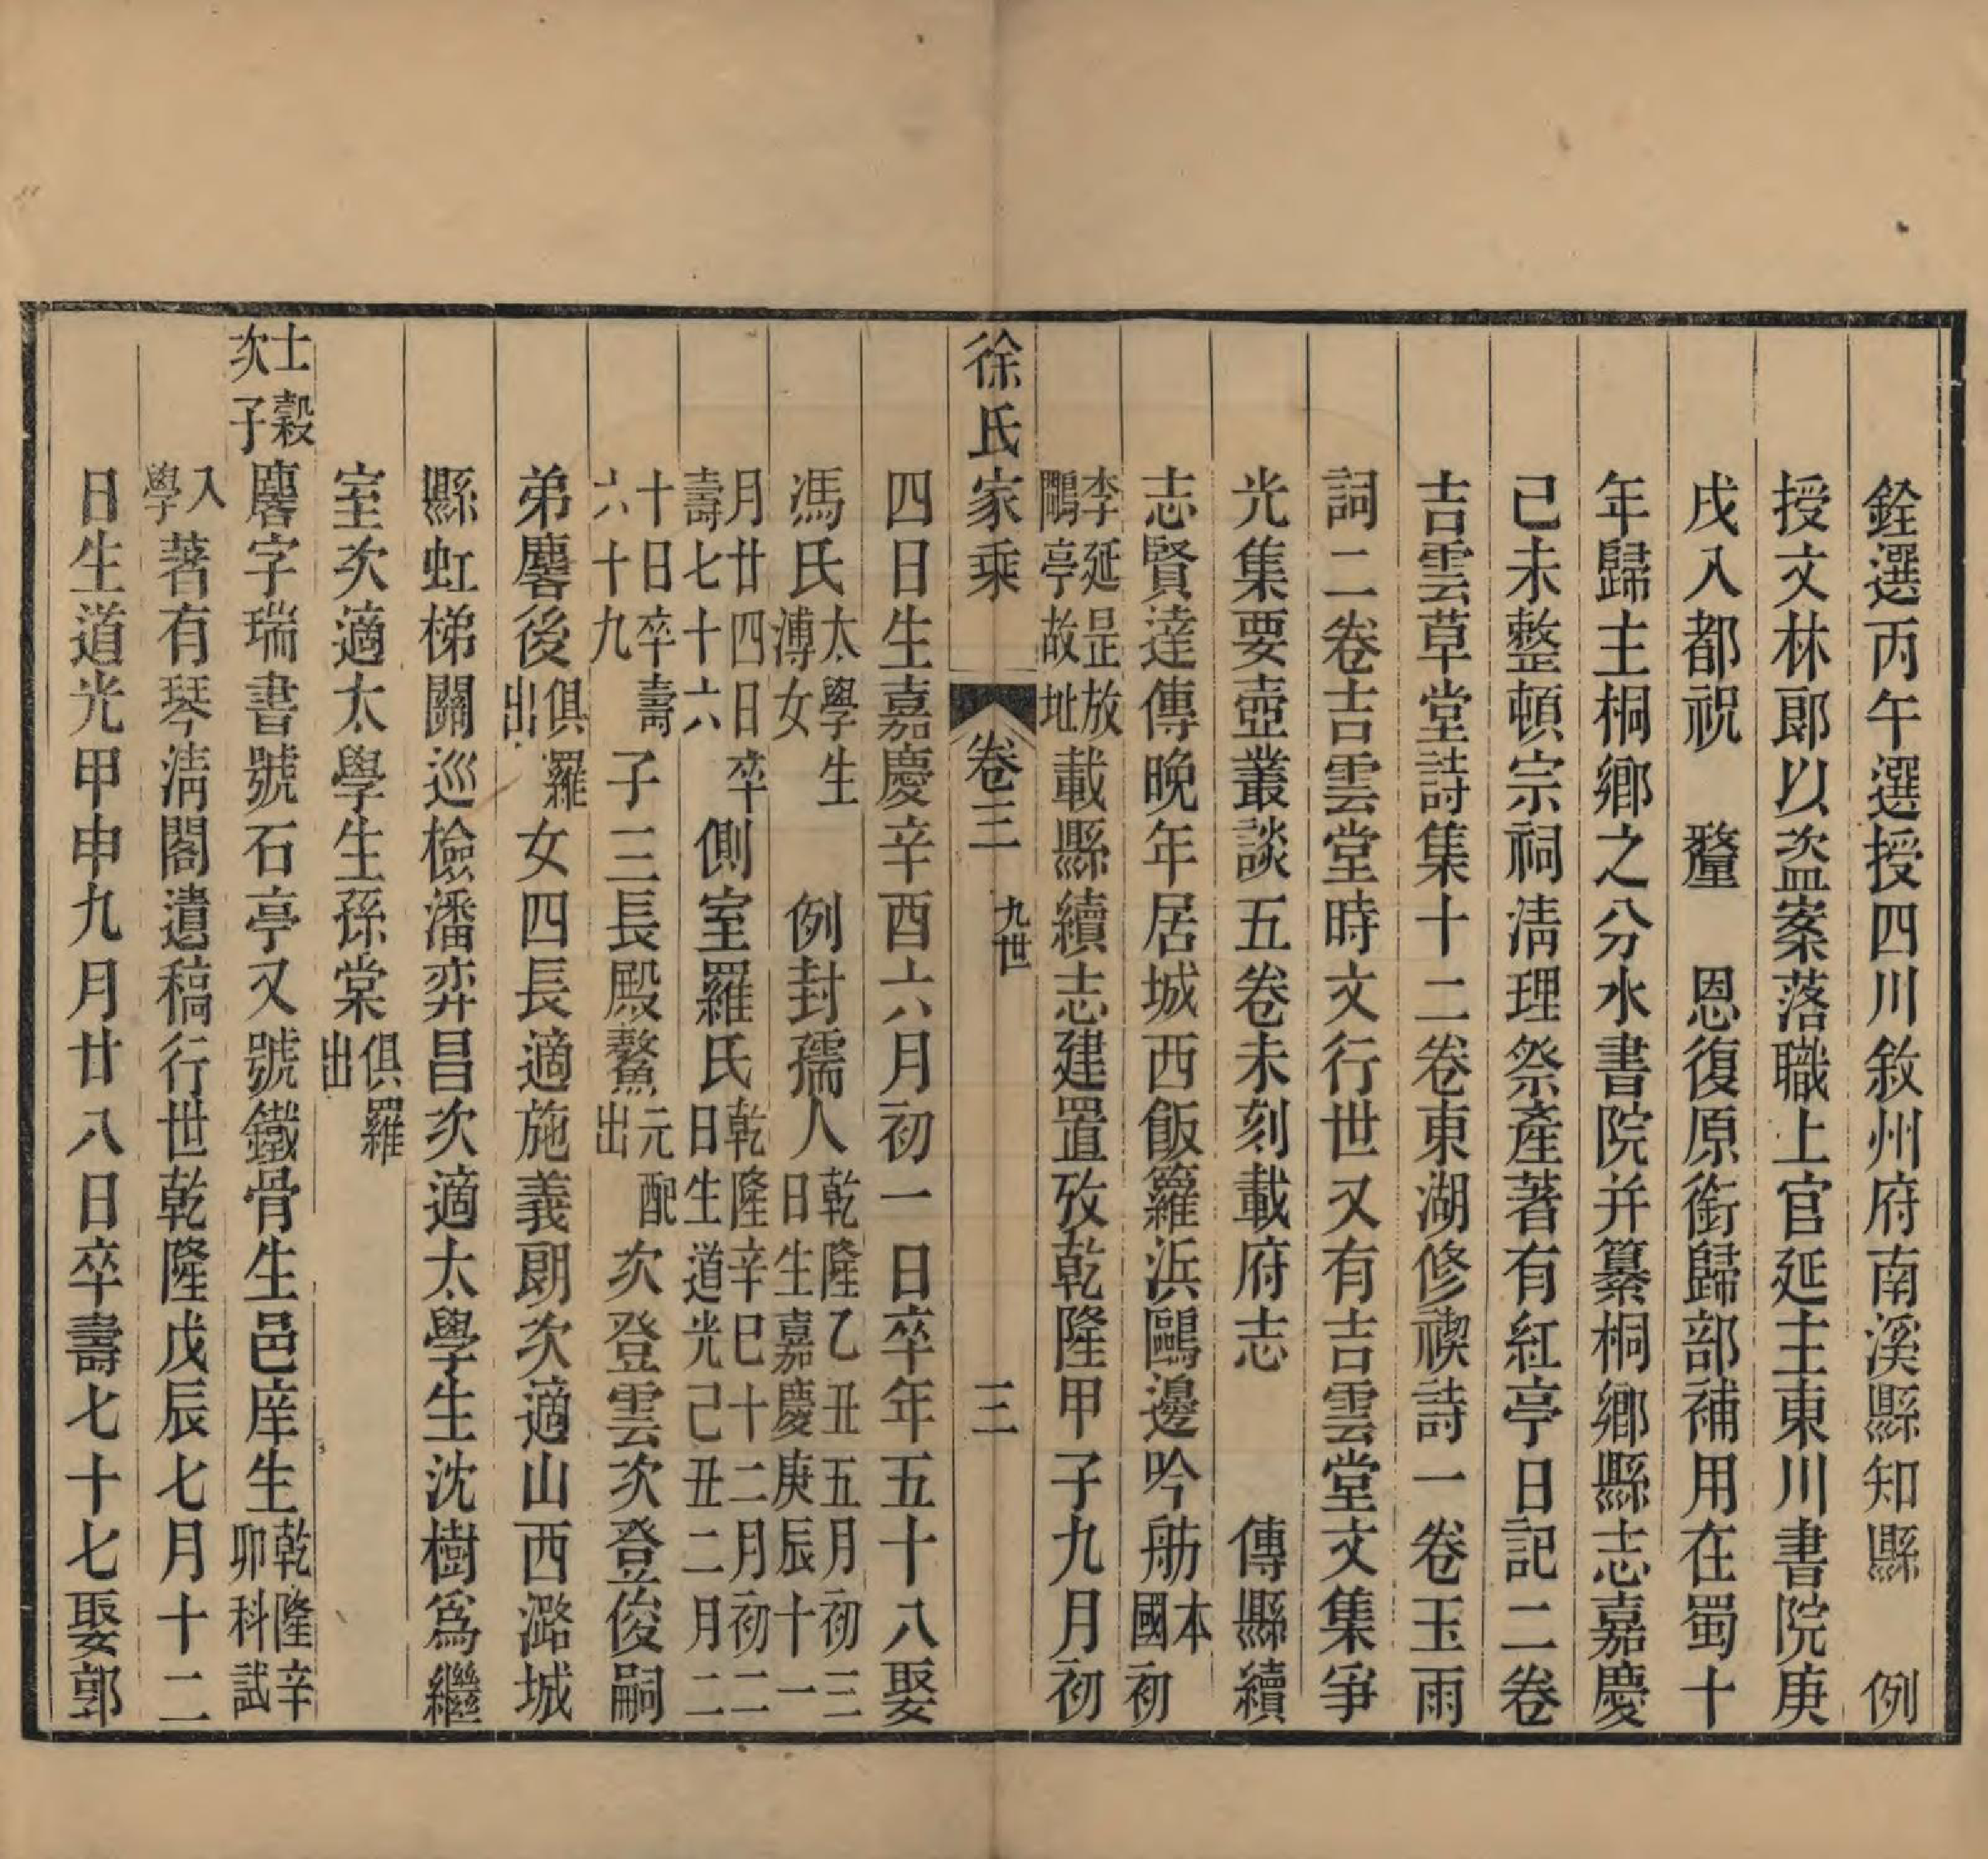 銓選丙午選授四川敘州府南溪縣知縣　例
授文林郎以盜案落職上官延主東川書院庚
戌入都祝　釐　恩復原銜歸部補用在蜀十
年歸主桐鄉之分水書院并纂桐鄉縣志嘉慶
己未整頓宗祠清理祭產著有紅亭日記二卷
吉雲草堂詩集十二卷東湖修禊詩一卷玉雨
詞二卷吉雲堂時文行世又有吉雲堂文集爭
光集要壺叢談五卷未刻載府志　傳縣續
志賢達傳晚年居城西飯籮浜鷗邊吟舫本國初
李延昰放鷳亭故址載縣續志建置攷乾隆甲子九月初
徐氏家乘　卷三　九世　三
四日生嘉慶辛酉六月初一日卒年五十八娶
馮氏太學生溥女　例封孺人乾隆乙丑五月初三日生嘉慶庚辰十一
月廿四日卒壽七十六側室羅氏乾隆辛巳十二月初二日生道光己丑二月二
十日卒壽六十九子三長殿鰲元配出次登雲次登俊嗣
弟麐後俱羅出女四長適施義朗次適山西潞城
縣虹梯關巡檢潘弈昌次適太學生沈樹為繼
室次適太學生孫棠俱羅出
士穀次子麐字瑞書號石亭又號鐵骨生邑庠生乾隆辛卯科試
入學著有琴清閣遺稿行世乾隆戊辰七月十二
日生道光甲申九月廿八日卒壽七十七娶郭